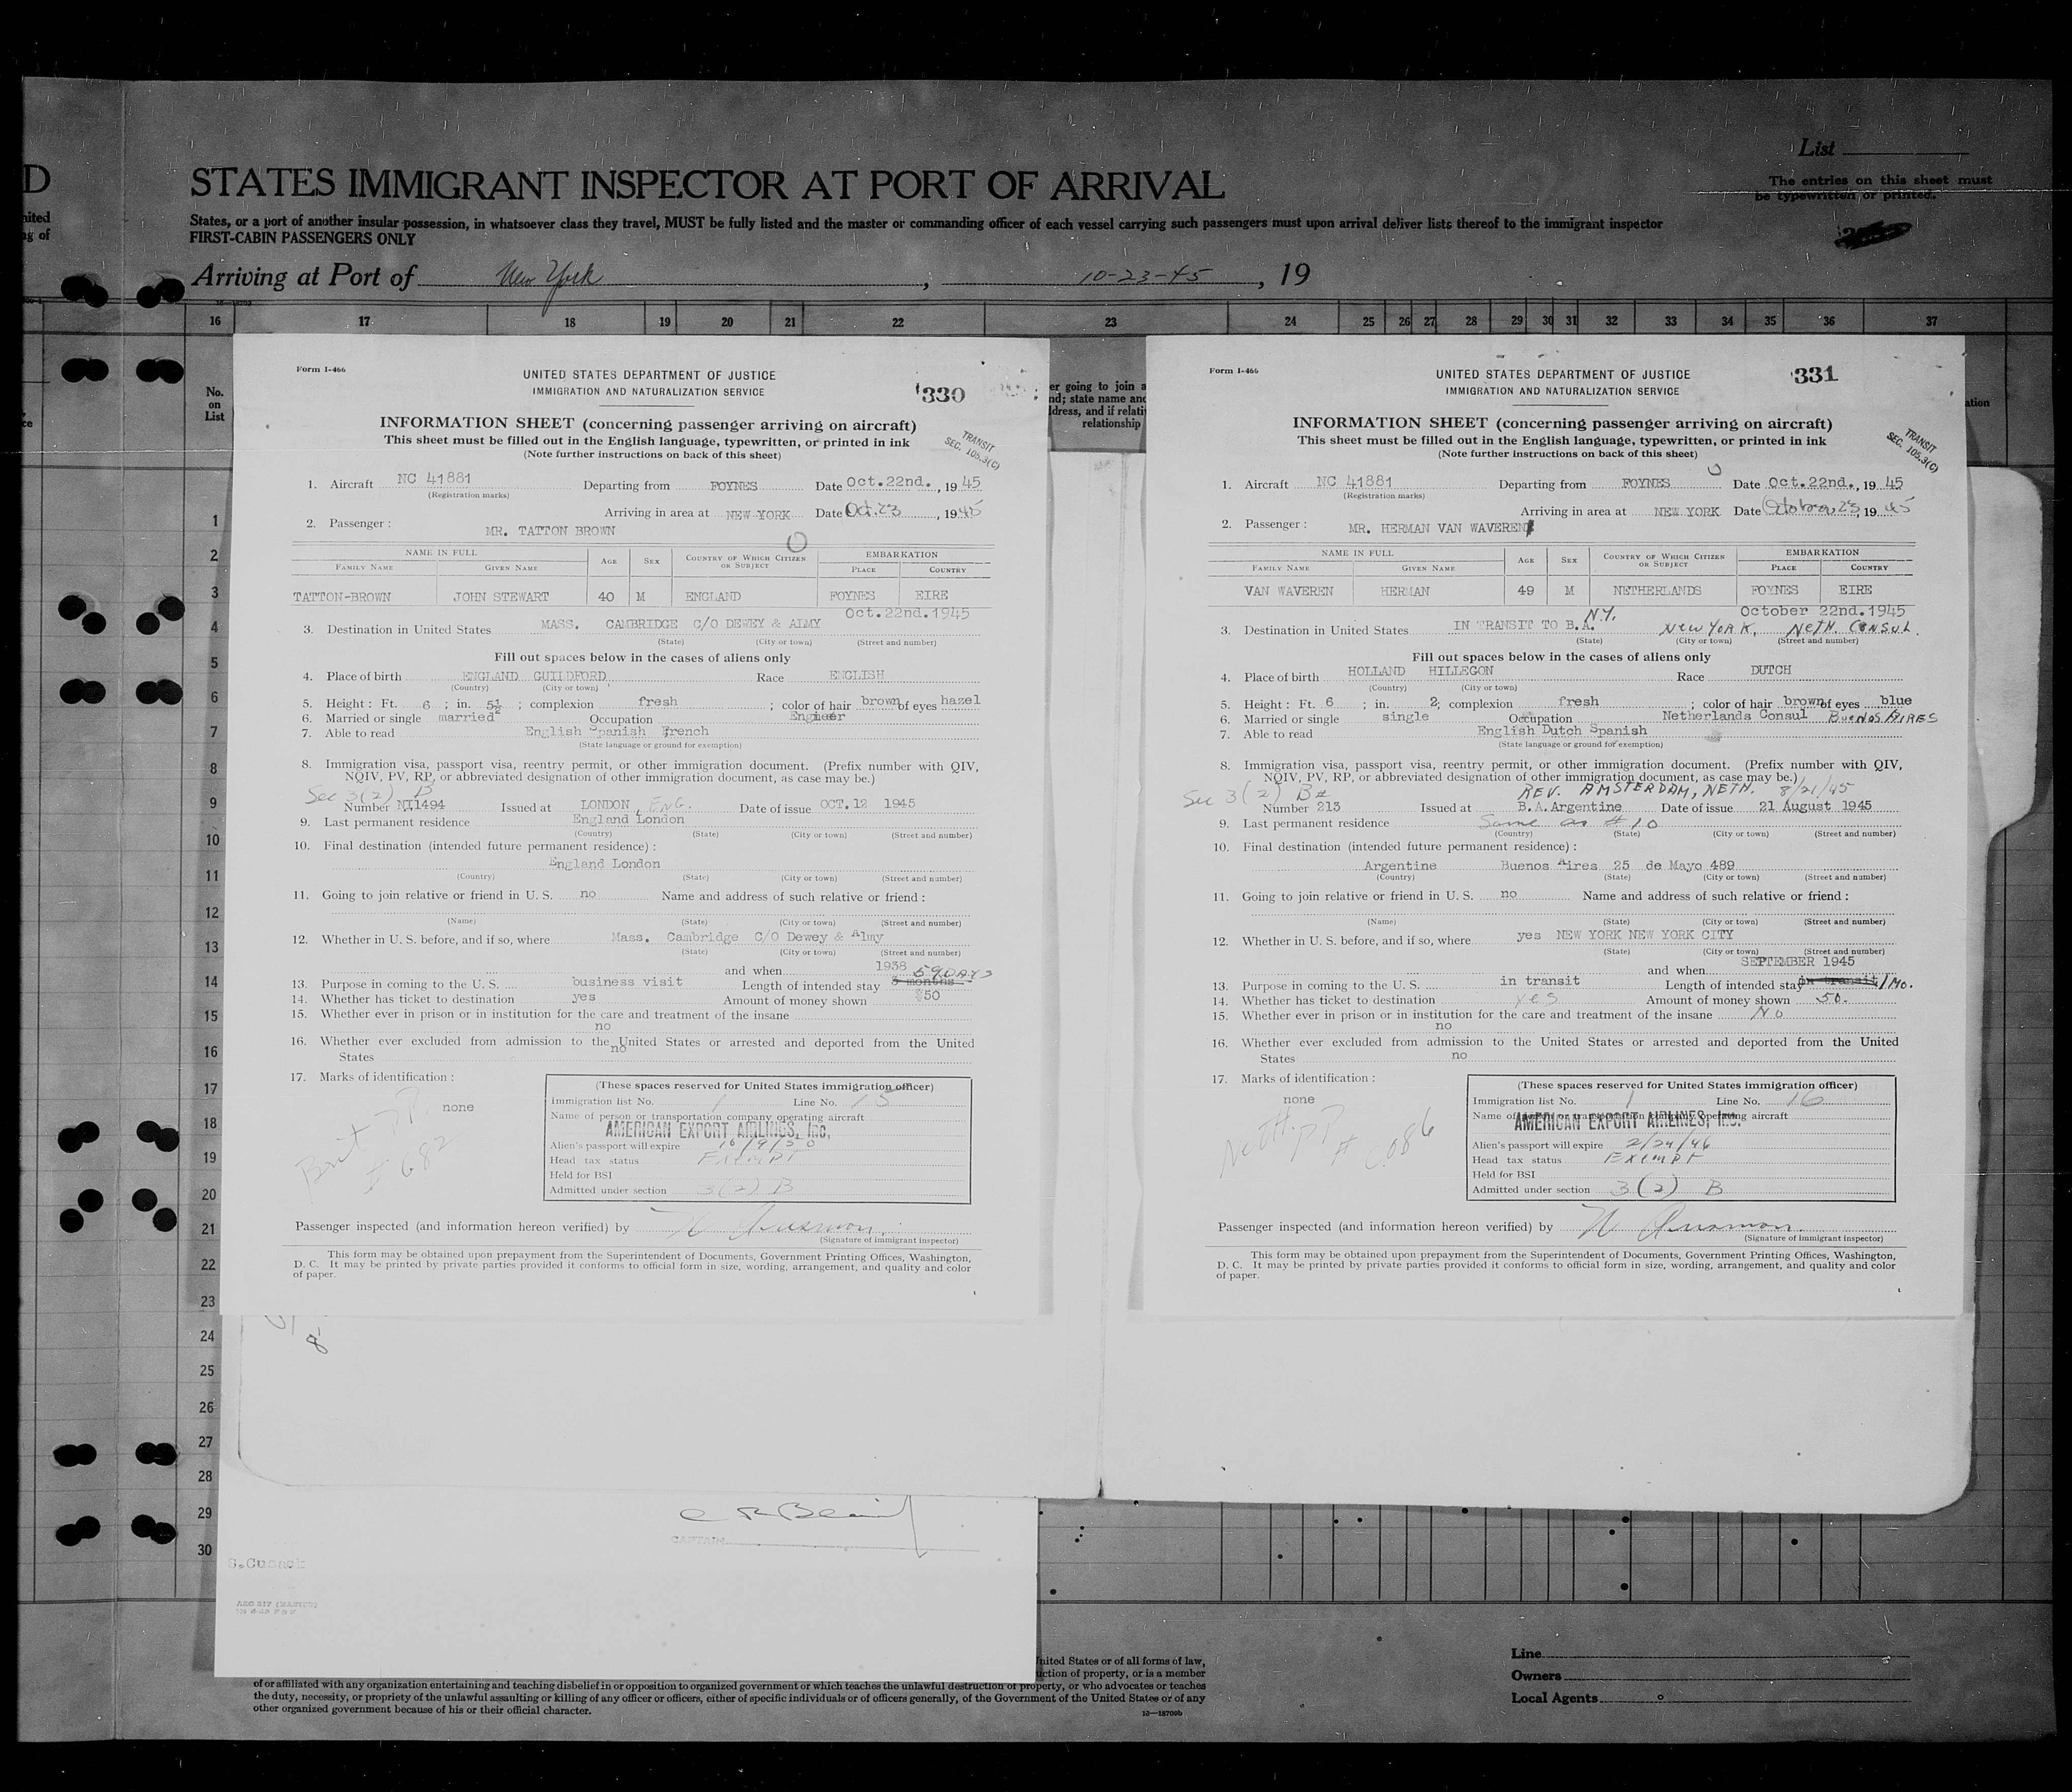 D
STATES IMMIGRANT INSPECTOR AT PORT OF ARRIVAL
List
The entries on this sheet must
be typewritten or printed.
nited
g of
States, or a port of another insular possession, in whatsoever class they travel, MUST be fully listed and the master or commanding officer of each vessel carrying such passengers must upon arrival deliver lists thereof to the immigrant inspector
FIRST-CABIN PASSENGERS ONLY
Arriving at Port of New York, 10-23-45, 19
16 17 18 19 20 21 22 23 24 25 26 27 28 29 30 31 32 33 34 35 36 37
No.
on
List
er going to join a
nd; state name and
dress, and if relati
relationship
ation
1
2
3
4
5
6
7
8
9
10
11
12
13
14
15
16
17
18
19
20
21
22
23
24
25
26
27
28
29
30
Form I-466
UNITED STATES DEPARTMENT OF JUSTICE
IMMIGRATION AND NATURALIZATION SERVICE
330
INFORMATION SHEET (concerning passenger arriving on aircraft)
This sheet must be filled out in the English language, typewritten, or printed in ink
(Note further instructions on back of this sheet)
TRANSIT
SEC. 105.3(C)
1. Aircraft NC 41881 Departing from FOYNES Date Oct.22nd., 1945
(Registration marks)
Arriving in area at NEW YORK Date Oct.23, 1945
2. Passenger: MR. TATTON BROWN
NAME IN FULL AGE SEX COUNTRY OF WHICH CITIZEN OR SUBJECT EMBARKATION
FAMILY NAME GIVEN NAME PLACE COUNTRY
TATTON-BROWN JOHN STEWART 40 M ENGLAND FOYNES EIRE
Oct.22nd.1945
3. Destination in United States MASS. CAMBRIDGE C/O DEWEY & ALMY
(State) (City or town) (Street and number)
Fill out spaces below in the cases of aliens only
4. Place of birth ENGLAND GUILDFORD Race ENGLISH
(Country) (City or town)
5. Height: Ft. 6; in. 5½; complexion fresh; color of hair brown of eyes hazel
6. Married or single married Occupation Engineer
7. Able to read English Spanish French
(State language or ground for exemption)
8. Immigration visa, passport visa, reentry permit, or other immigration document. (Prefix number with QIV,
NQIV, PV, RP, or abbreviated designation of other immigration document, as case may be.)
Sec 3(2) B
Number NI1494 Issued at LONDON, ENG. Date of issue OCT.12 1945
9. Last permanent residence England London
(Country) (State) (City or town) (Street and number)
10. Final destination (intended future permanent residence):
England London
(Country) (State) (City or town) (Street and number)
11. Going to join relative or friend in U. S. no Name and address of such relative or friend:
(Name) (State) (City or town) (Street and number)
12. Whether in U. S. before, and if so, where Mass. Cambridge C/O Dewey & Almy
(State) (City or town) (Street and number)
and when 1938
59 DAYS
13. Purpose in coming to the U. S. business visit Length of intended stay 3 months
14. Whether has ticket to destination yes Amount of money shown $50
15. Whether ever in prison or in institution for the care and treatment of the insane
no
16. Whether ever excluded from admission to the United States or arrested and deported from the United
States no
17. Marks of identification:
none
Brit PP.
# 682
(These spaces reserved for United States immigration officer)
Immigration list No. 1 Line No. 15
Name of person or transportation company operating aircraft
AMERICAN EXPORT AIRLINES, Inc.
Alien's passport will expire 10/9/50
Head tax status EXEMPT
Held for BSI
Admitted under section 3(2) B
Passenger inspected (and information hereon verified) by
(Signature of immigrant inspector)
This form may be obtained upon prepayment from the Superintendent of Documents, Government Printing Offices, Washington,
D. C. It may be printed by private parties provided it conforms to official form in size, wording, arrangement, and quality and color
of paper.
Form I-466
UNITED STATES DEPARTMENT OF JUSTICE
IMMIGRATION AND NATURALIZATION SERVICE
331
INFORMATION SHEET (concerning passenger arriving on aircraft)
This sheet must be filled out in the English language, typewritten, or printed in ink
(Note further instructions on back of this sheet)
TRANSIT
SEC. 105.3(C)
1. Aircraft NC 41881 Departing from FOYNES Date Oct.22nd., 1945
(Registration marks)
Arriving in area at NEW YORK Date October 23, 1945
2. Passenger: MR. HERMAN VAN WAVEREN
NAME IN FULL AGE SEX COUNTRY OF WHICH CITIZEN OR SUBJECT EMBARKATION
FAMILY NAME GIVEN NAME PLACE COUNTRY
VAN WAVEREN HERMAN 49 M NETHERLANDS FOYNES EIRE
October 22nd.1945
3. Destination in United States IN TRANSIT TO B.A. N.Y. NEW YORK, NETH. CONSUL.
(State) (City or town) (Street and number)
Fill out spaces below in the cases of aliens only
4. Place of birth HOLLAND HILLEGON Race DUTCH
(Country) (City or town)
5. Height: Ft. 6; in. 2; complexion fresh; color of hair brown of eyes blue
6. Married or single single Occupation Netherlands Consul BUENOS AIRES
7. Able to read English Dutch Spanish
(State language or ground for exemption)
8. Immigration visa, passport visa, reentry permit, or other immigration document. (Prefix number with QIV,
NQIV, PV, RP, or abbreviated designation of other immigration document, as case may be.)
Sec 3(2) B# REV. AMSTERDAM, NETH. 8/21/45
Number 213 Issued at B.A.Argentine Date of issue 21 August 1945
9. Last permanent residence Same as #10
(Country) (State) (City or town) (Street and number)
10. Final destination (intended future permanent residence):
Argentine Buenos Aires 25 de Mayo 489
(Country) (State) (City or town) (Street and number)
11. Going to join relative or friend in U. S. no Name and address of such relative or friend:
(Name) (State) (City or town) (Street and number)
12. Whether in U. S. before, and if so, where yes NEW YORK NEW YORK CITY
(State) (City or town) (Street and number)
and when SEPTEMBER 1945
13. Purpose in coming to the U. S. in transit Length of intended stay in transit 1 Mo.
14. Whether has ticket to destination yes Amount of money shown 50.
15. Whether ever in prison or in institution for the care and treatment of the insane No
no
16. Whether ever excluded from admission to the United States or arrested and deported from the United
States no
17. Marks of identification:
none
Neth. PP
# C.086
(These spaces reserved for United States immigration officer)
Immigration list No. 1 Line No. 16
Name of person or transportation company operating aircraft
AMERICAN EXPORT AIRLINES, Inc.
Alien's passport will expire 2/24/46
Head tax status EXEMPT
Held for BSI
Admitted under section 3(2) B
Passenger inspected (and information hereon verified) by
(Signature of immigrant inspector)
This form may be obtained upon prepayment from the Superintendent of Documents, Government Printing Offices, Washington,
D. C. It may be printed by private parties provided it conforms to official form in size, wording, arrangement, and quality and color
of paper.
CAPTAIN
S.Cusack
nited States or of all forms of law,
uction of property, or is a member
of or affiliated with any organization entertaining and teaching disbelief in or opposition to organized government or which teaches the unlawful destruction of property, or who advocates or teaches
the duty, necessity, or propriety of the unlawful assaulting or killing of any officer or officers, either of specific individuals or of officers generally, of the Government of the United States or of any
other organized government because of his or their official character.
16—18709b
Line
Owners
Local Agents